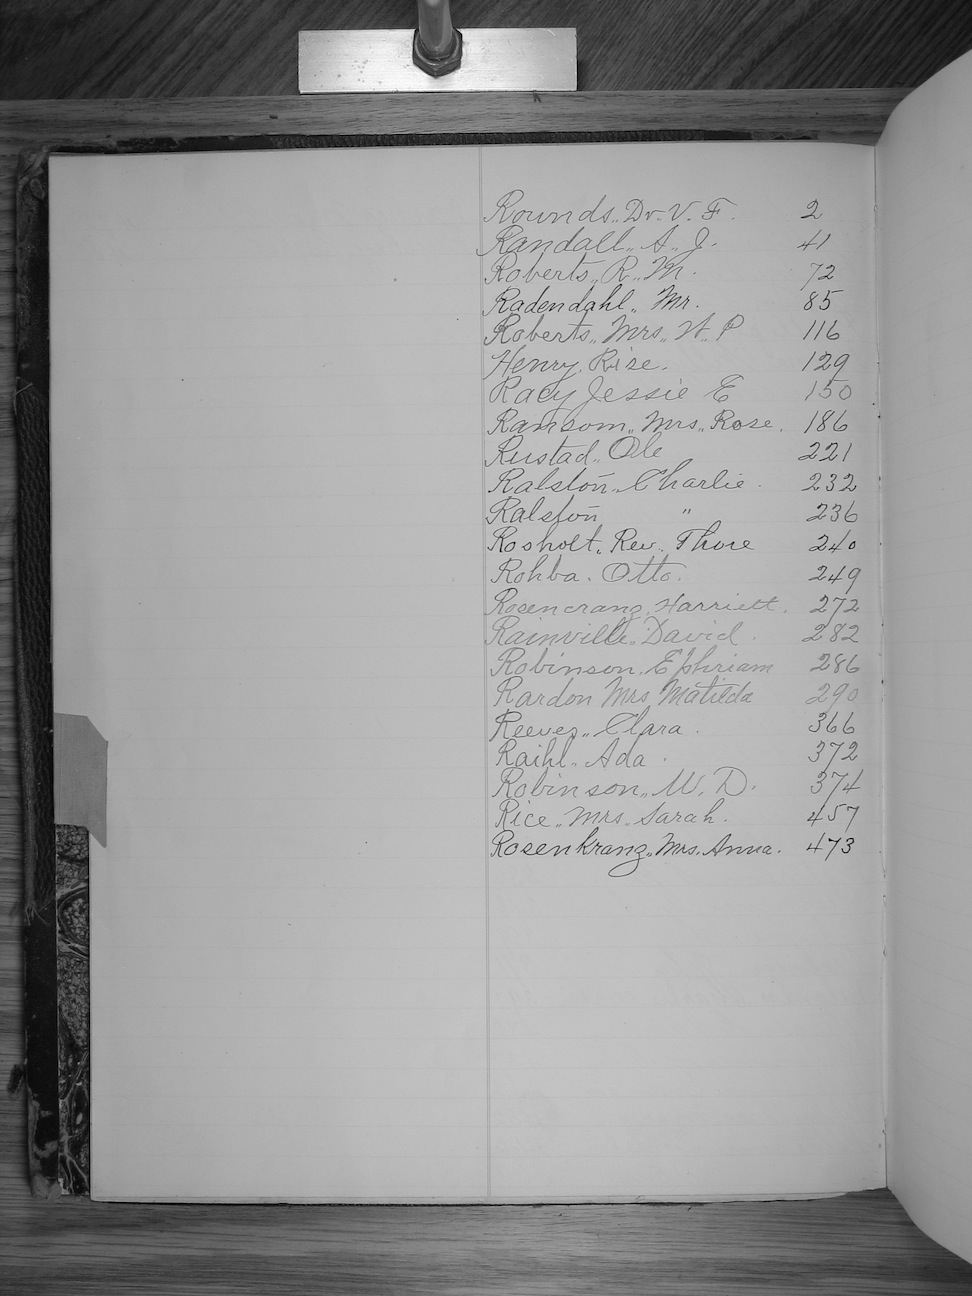 Rounds,, Dr. V. F. 2
Randall,, A,, J. 41
Roberts,, R,, M. 72
Radendahl,, Mr. 85
Roberts,, Mrs,, W,, P 116
Henry, Rise. 129
Racy Jessie E 150
Ransom,, Mrs,, Rose. 186
Rustad,, Ole 221
Ralston,, Charlie. 232
Ralston " 236
Rosholt, Rev. Thore 240
Rohba. Otto. 249
Rosencranz, Harriett. 272
Rainville, David. 282
Robinson, Ephriam 286
Rardon Mrs Matilda 290
Reeves,, Clara. 366
Raihl,, Ada. 372
Robinson,, W. D. 374
Rice,, Mrs,, Sarah. 457
Rosenkranz,, Mrs. Anna. 473